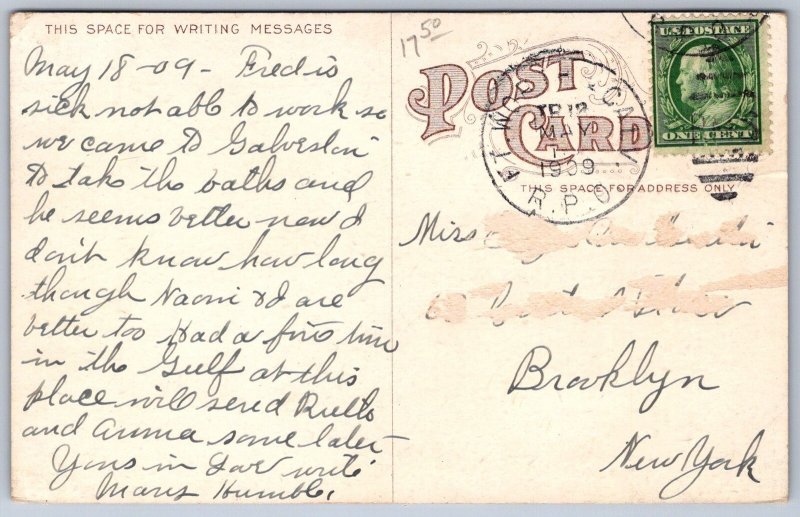 THIS SPACE FOR WRITING MESSAGES
May 18-09- Fred is
sick not able to work so
we came to Galveston
to take the baths and
he seems better now I
don't know how long
though Naomi & I are
better too Had a fine time
in the Gulf at this
place will send Ruth
and Anna some later
Yours in love write
Mary Humble,
17 50
POST
CARD
FT WORTH &
TR 12
MAY
1909
R.P.O.
U.S. POSTAGE
ONE CENT
THIS SPACE FOR ADDRESS ONLY
Miss
Brooklyn
New York